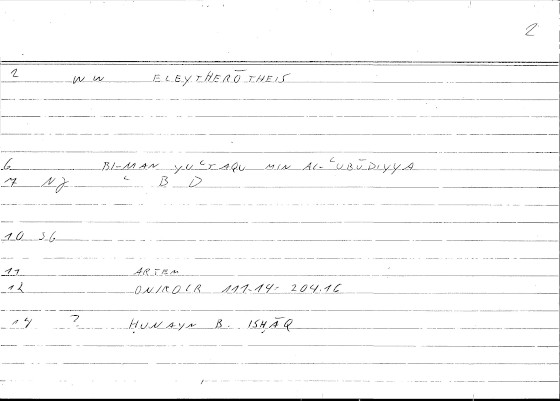 2
2 WW ELEYTHERŌTHEIS
6 BI-MAN YUʿTAQU MIN AL-ʿUBŪDIYYA
7 NJ ʿ B D
10 SG
11 ARTEM
12 ONIROCR 111.14- 204.16
14 ? ḤUNAYN B. ISḤĀQ